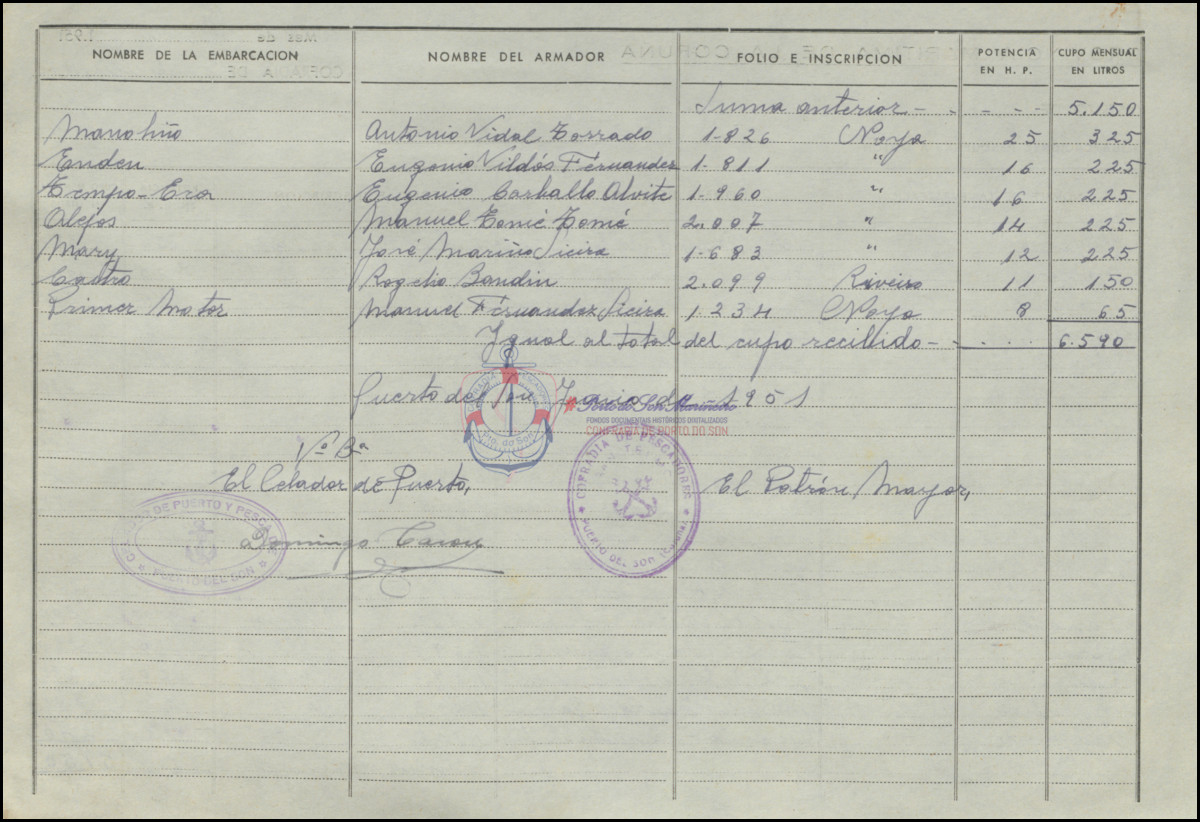 NOMBRE DE LA EMBARCACION NOMBRE DEL ARMADOR FOLIO E INSCRIPCION POTENCIA EN H. P. CUPO MENSUAL EN LITROS
Suma anterior - - - - - 5.150
Manoliño Antonio Vidal Torrado 1-826 Noya 25 325
Enden Eugenio Vildós Férnandez 1-811 " 16 225
Tempo-Era Eugenio Carballo Alvite 1-960 " 16 225
Alejos Manuel Tomé Tomé 2.007 " 14 225
Mary José Mariño Sieira 1-683 " 12 225
Castro Rogelio Bandin 2.099 Riveira 11 150
Primer Motor Manuel Férnandez Sieira 1.234 Noya 8 65
Ygual al total del cupo recibido - - . . . 6.590
Puerto del Son, de 1951
COFRADÍA DE PESCADORES
Pto. do Son
Porto do Son Mariñeiro
FONDOS DOCUMENTAIS HISTÓRICOS DIGITALIZADOS
CONFRARÍA DE PORTO DO SON
Vº Bº
El Celador de Puerto, El Patrón Mayor,
DE PUERTO Y PESCA
PUERTO DEL SON
COFRADIA DE PESCADORES
PUERTO DEL SON
Domingo